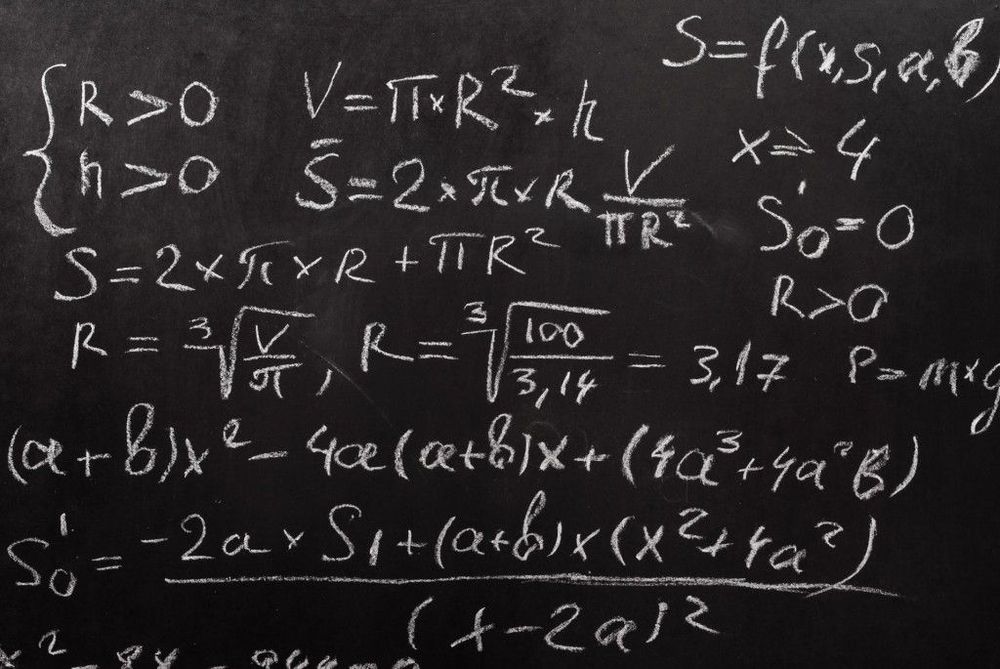 S=f(x,S,a,b)
{ R>0 V=π×R²×h
h>0 S̄=2×π×R V/πR² x⩾4
S=2×π×R+πR² S₀'=0
R>0
R=³√(V/π), R=³√(100/3,14)=3,17 P=m×g
(a+b)x²-4a(a+b)x+(4a³+4a²b)
S₀'=(-2a×S₁+(a+b)x(x²+4a²))/(x-2a)²